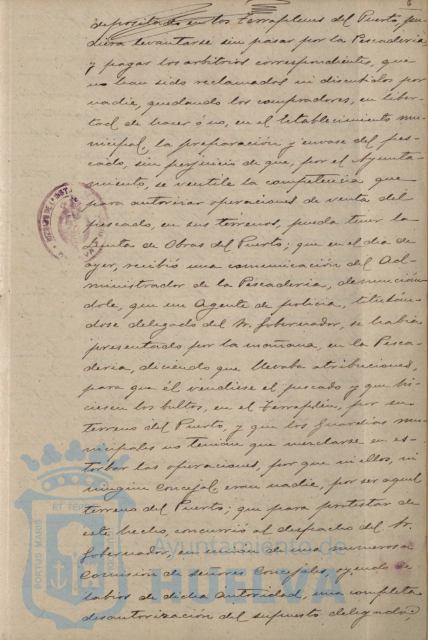 6
depositados en los terraplenes del Puerto, pu-
diera levantarse sin pasar por la Pescaderia
y pagar los arbitrios correspondientes, que
no han sido reclamados ni discutidos por
nadie, quedando los compradores, en liber-
tad de hacer ó no, en el Establecimiento mu-
nicipal, la preparación y envase del pes-
cado, sin perjuicio de que, por el Ayunta-
miento, se ventile la competencia que
para autorizar operaciones de venta del
pescado, en sus terrenos, pueda tener la
Junta de Obras del Puerto; que en el dia de
ayer, recibió una comunicación del Ad-
ministrador de la Pescaderia, denuncián-
dole, que un Agente de policia, titulán-
dose delegado del Sr. Gobernador, se habia
presentado por la mañana, en la Pesca-
deria, diciendo que llevaba atribuciones,
para que él vendiese el pescado y que hi-
ciesen los bultos, en el Terraplén, por ser
terreno del Puerto, y que los Guardias mu-
nicipales no tenian que mezclarse en es-
torbar las operaciones, por que ni ellos, ni
ningun Concejal eran nadie, por ser aquel
terreno del Puerto; que para protestar de
este hecho, concurrió al despacho del Sr.
Gobernador, en union de una numerosa
Comision de señores Concejales oyendo de
labios de dicha Autoridad, una completa
desautorización del supuesto delegado;
PORTUS MARIS ET TERR
Ayuntamiento de
HUELVA